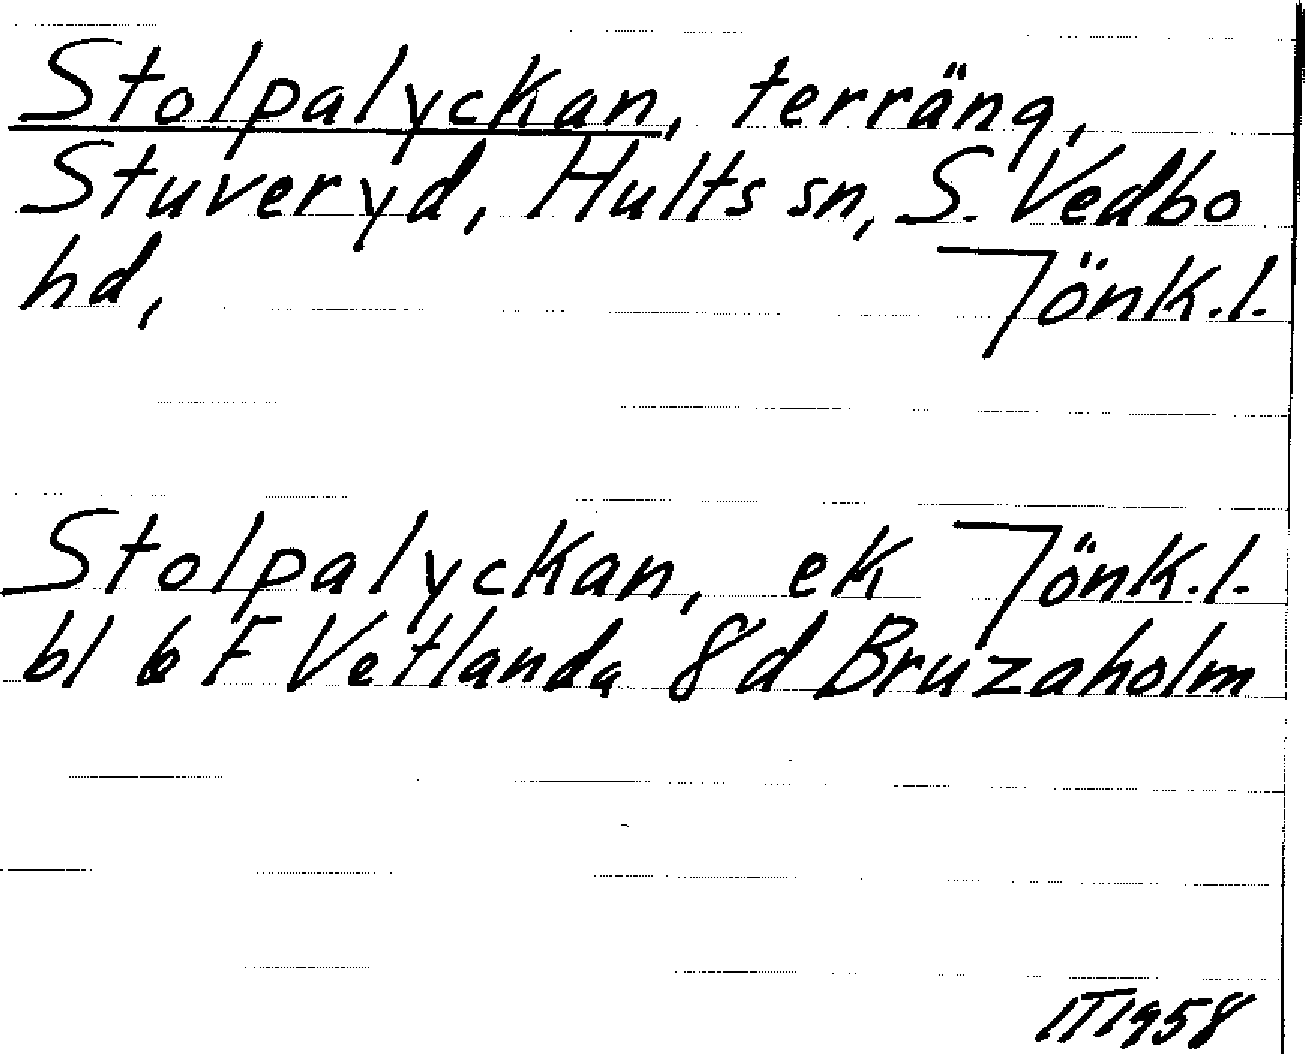 Stolpalyckan, terräng,
Stuveryd, Hults sn, S. Vedbo
hd, Jönk.l.
Stolpalyckan, ek Jönk.l.
bl 6 F Vetlanda 8d Bruzaholm
IT1958